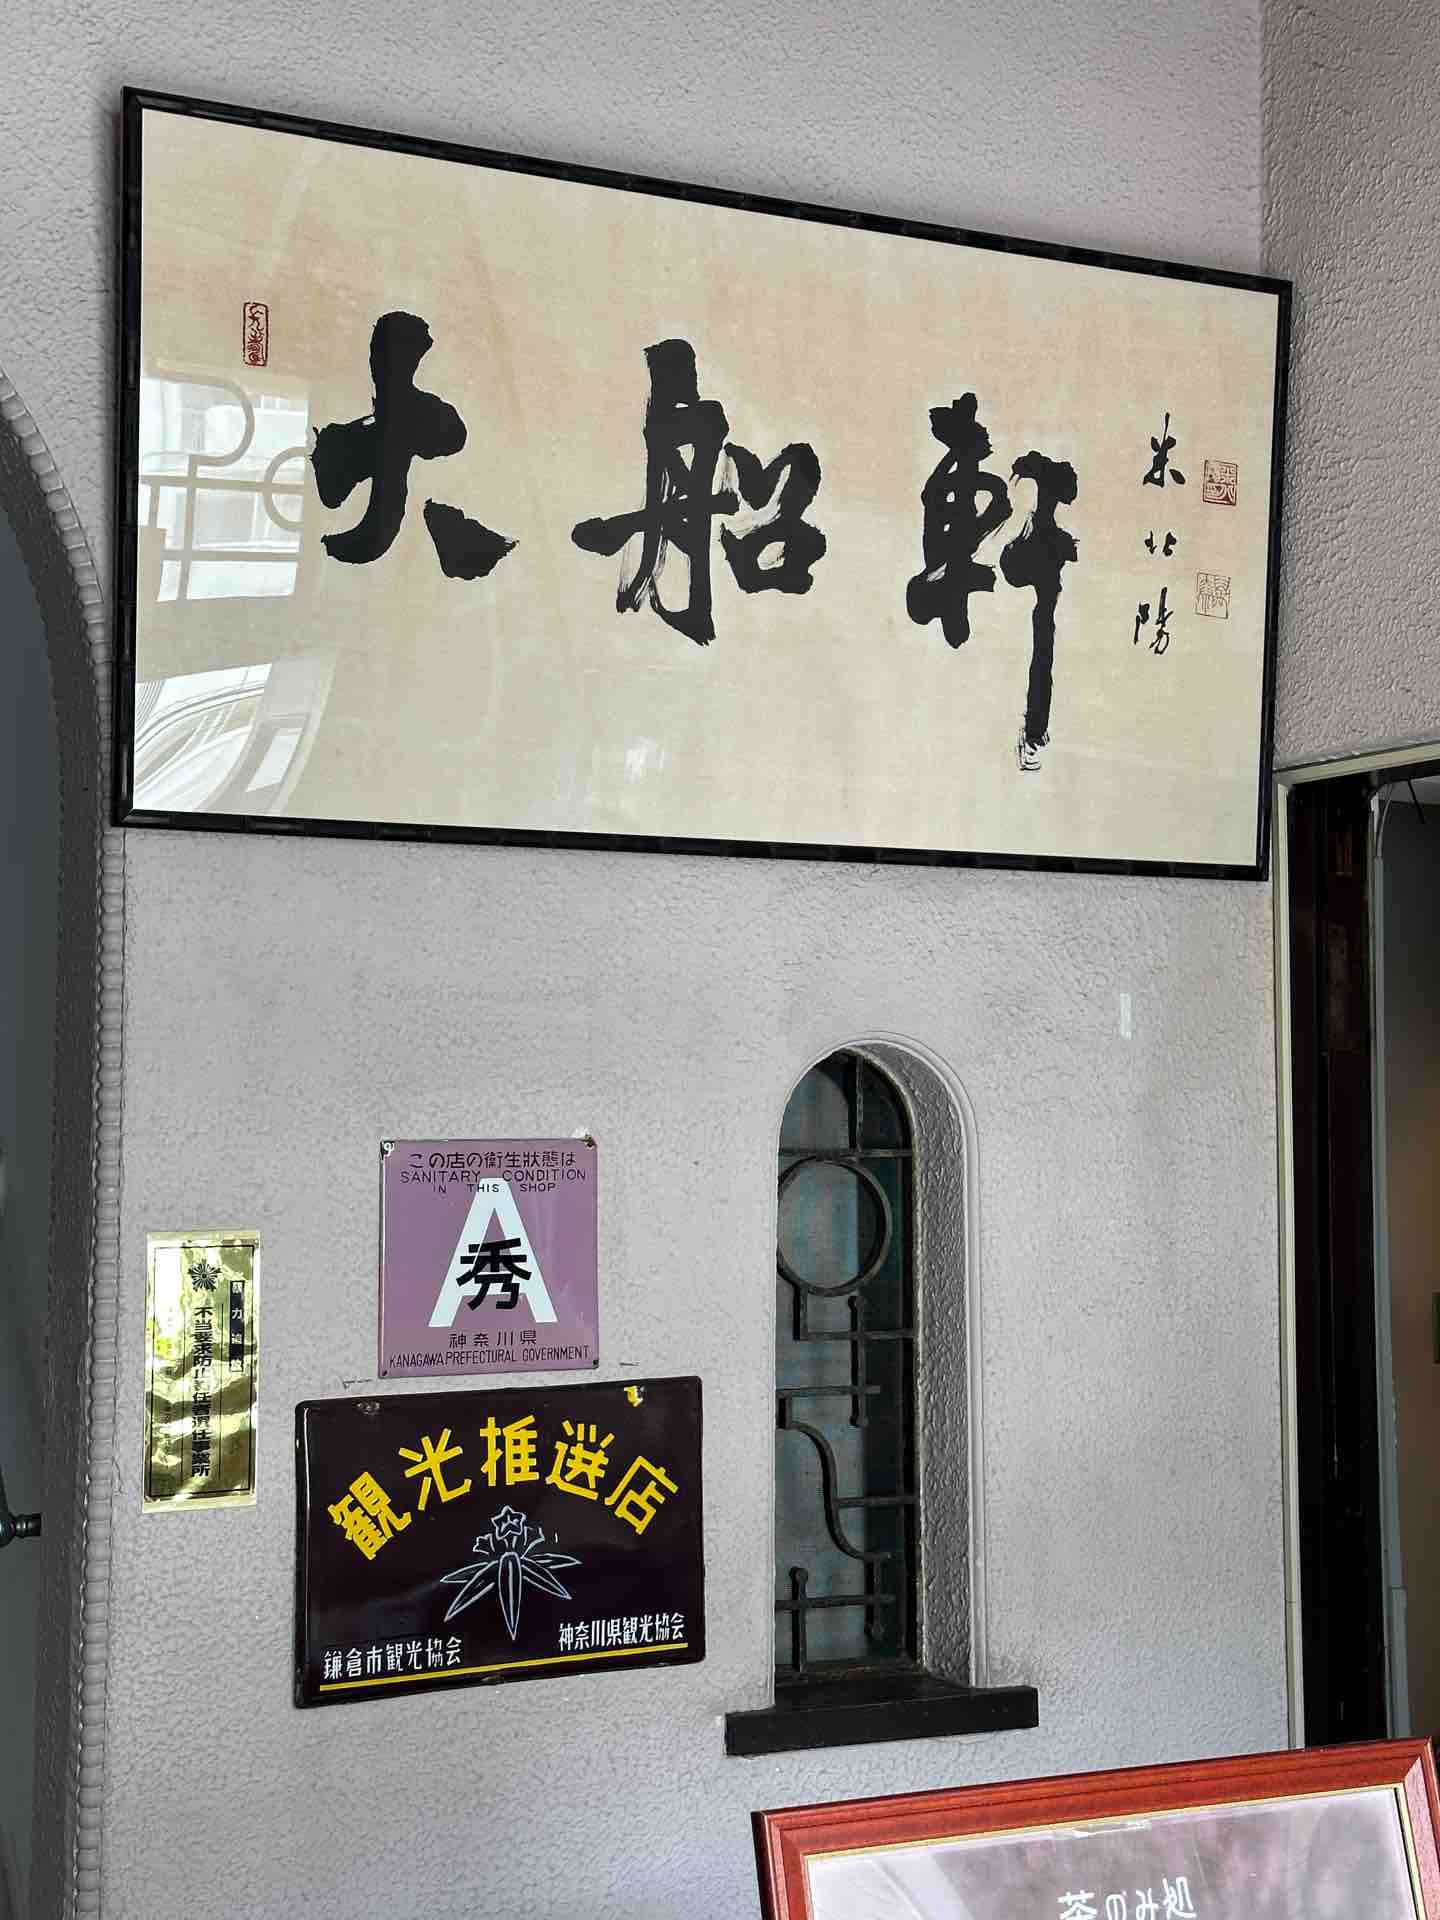 大船軒
米北陽
この店の衛生狀態は
SANITARY CONDITION
IN THIS SHOP
A
秀
神奈川県
KANAGAWA PREFECTURAL GOVERNMENT
暴力追放
不当要求防止責任者選任事業所
観光推選店
鎌倉市観光協会
神奈川県観光協会
茶のみ処